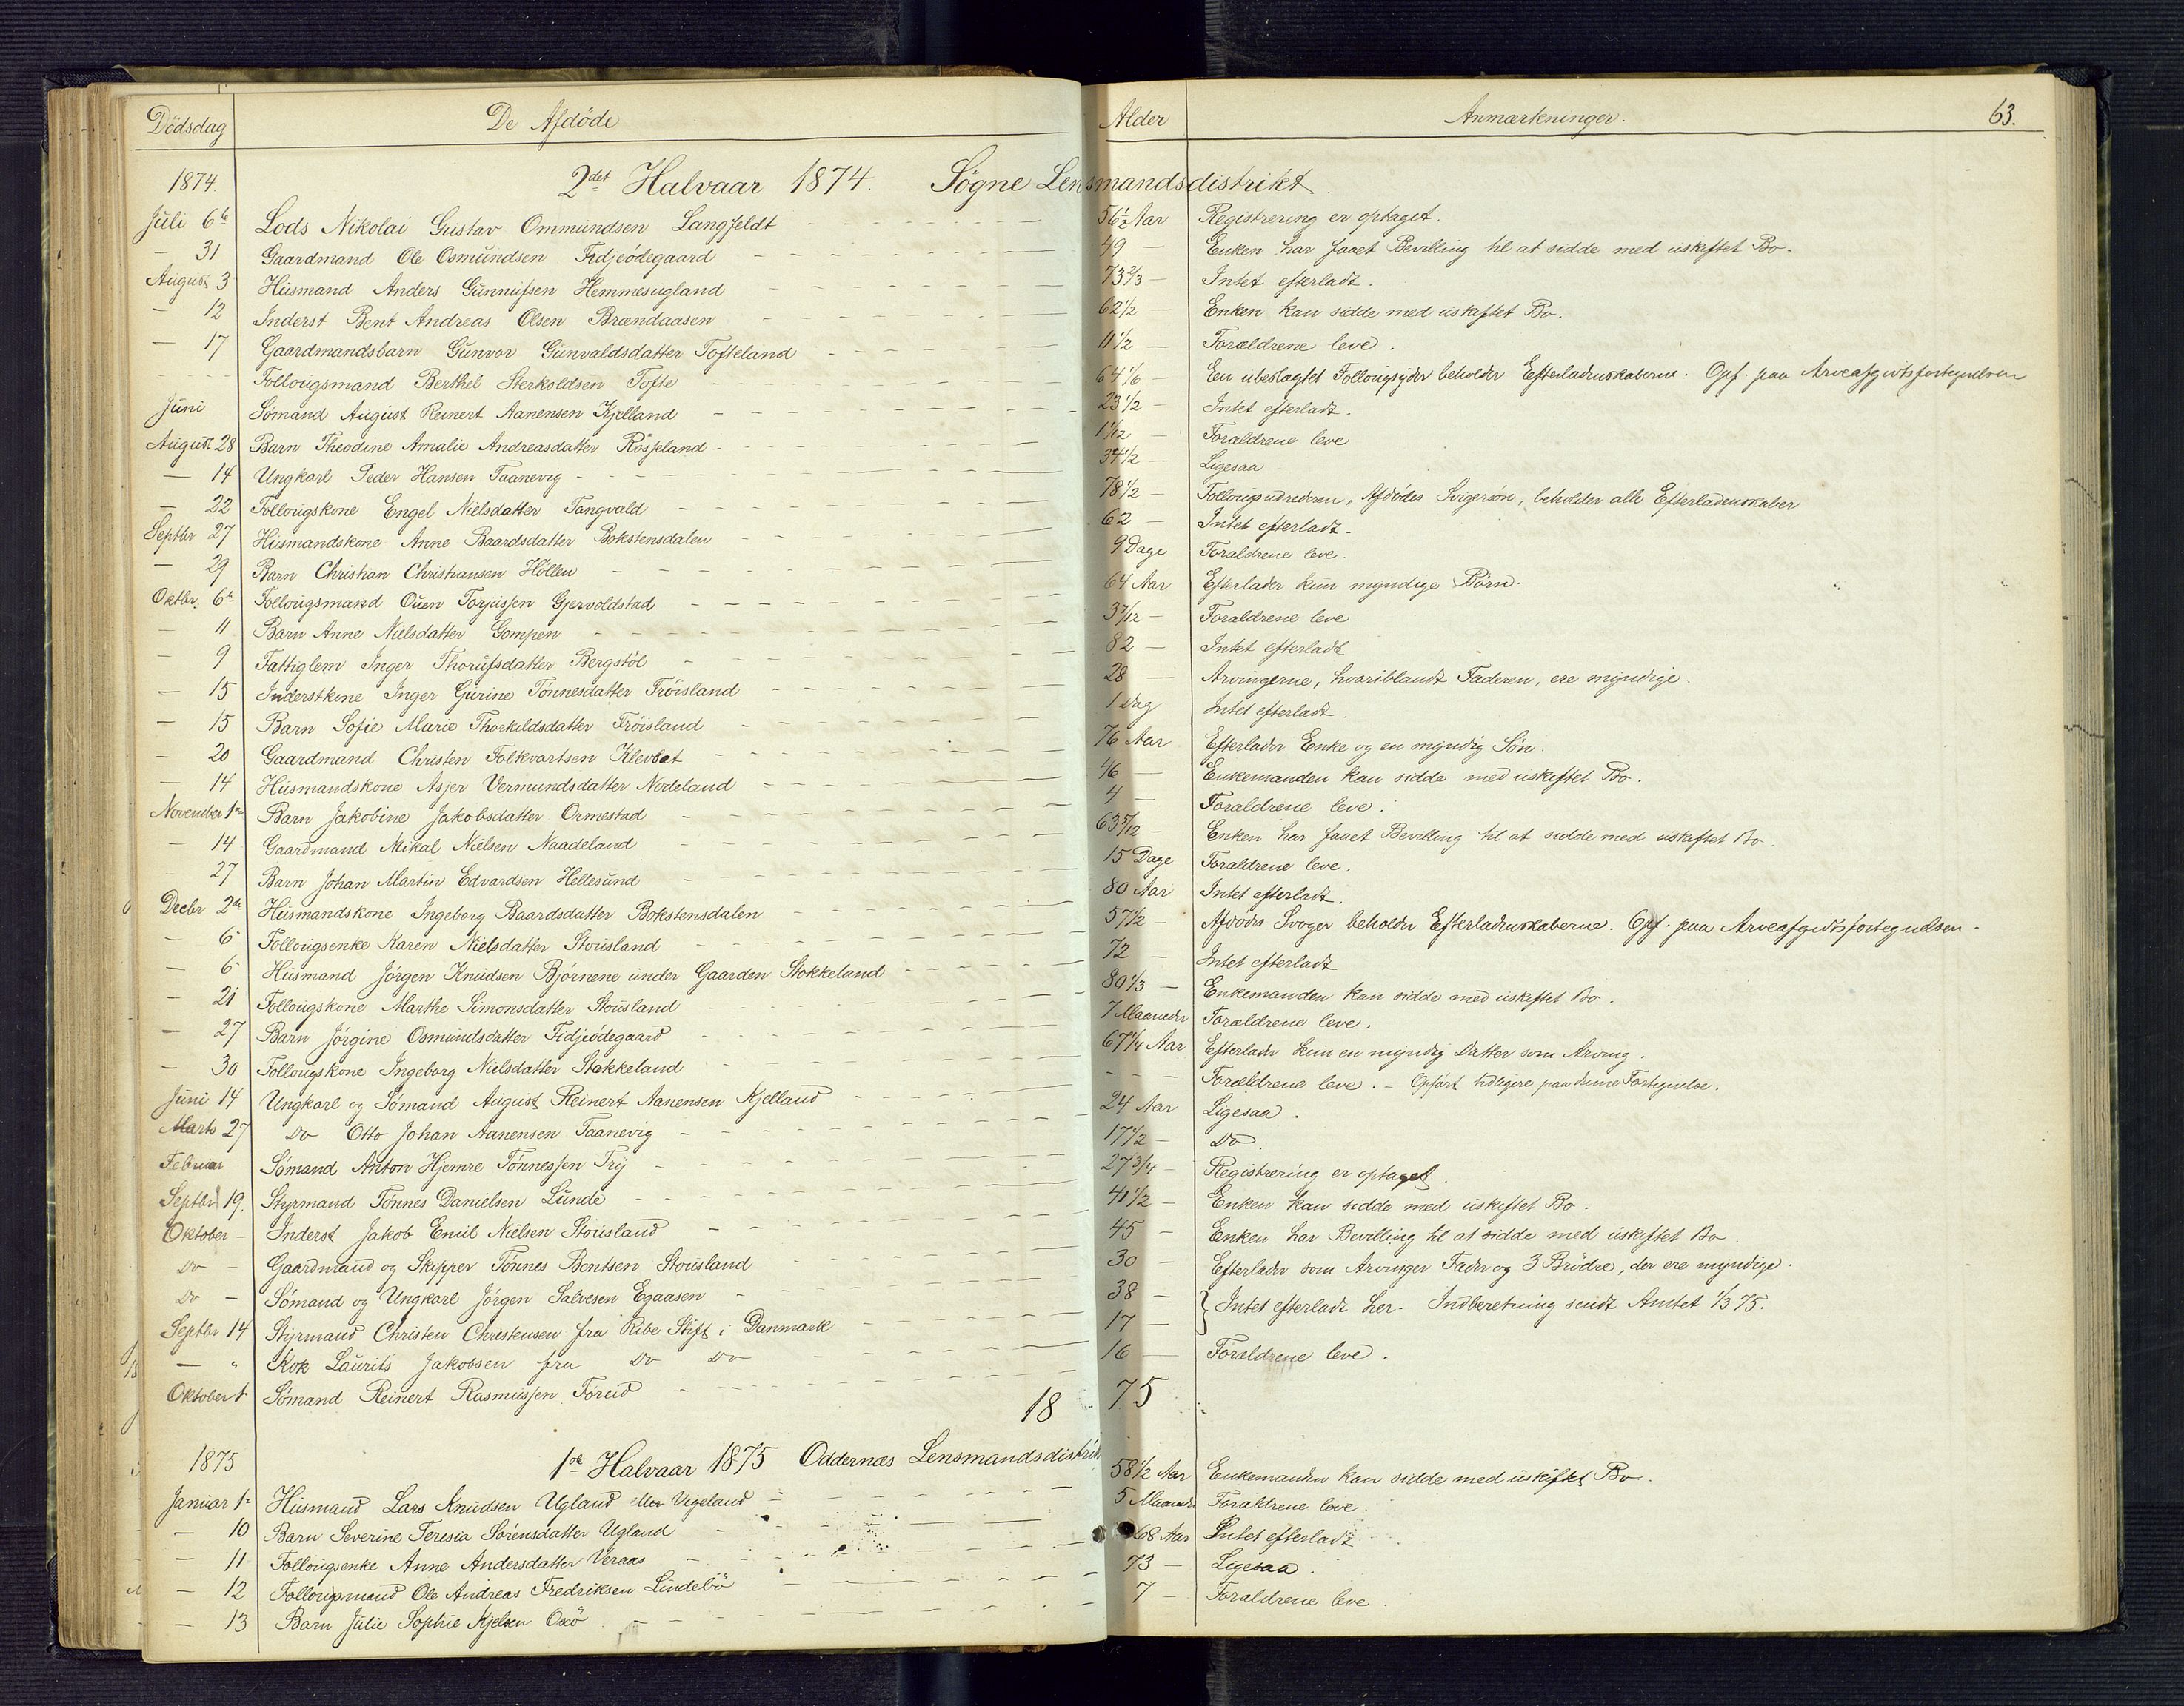 Dødsdag De Afdöde Alder Anmærkninger. 63.
1874. 2det Halvaar 1874. Sögne Lensmandsdistrikt.
Juli 6te Lods Nikolai Gustav Ommundsen Langfeldt 56½ Aar Registrering er optaget.
— 31 Gaardmand Ole Osmundsen Fidjeödegaard 49 — Enken har faaet Bevilling til at sidde med uskiftet Bo.
August 3 Husmand Anders Gunnufsen Hemmesugland 73 2/3 — Intet efterladt.
— 12 Inderst Bent Andreas Olsen Brændaasen 62 1/2 — Enken kan sidde med uskiftet Bo.
— 17 Gaardmandsbarn Gunvor Gunvaldsdatter Tofteland 11 1/2 — Forældrene leve.
- - - Follougsmand Berthel Sterkoldsen Tofte 64 1/6 — En ubeslagtet Follougsyder beholder Efterladenskaberne. Opf. paa Arveafgiftsfortegnelsen
Juni Sömand August Reinert Aanensen Kjelland 23 1/2 — Intet efterladt.
August 28 Barn Theodine Amalie Andreasdatter Rösseland 1 1/12 — Forældrene leve
— 14 Ungkarl Peder Hansen Taanevig 34 1/2 — Ligesaa
— 22 Follougskone Engel Nielsdatter Tangvald 78 1/2 — Follougsudrederen, Afdödes Svigersön, beholder alle Efterladenskaber
Septbr 27 Husmandskone Anne Baardsdatter Bokstensdalen 62 — Intet efterladt.
— 29 Barn Christian Christiansen Höllen 9 Dage Forældrene leve.
Oktbr. 6te Follougsmand Ouen Torjussen Gjervoldstad 64 Aar Efterlader kun myndige Börn.
— 11 Barn Anne Nielsdatter Gompen 3 7/12 — Forældrene leve
— 9 Fattiglem Inger Thorufsdatter Bergstöl 82 — Intet efterladt
— 15 Inderstkone Inger Gurine Tönnesdatter Fröisland 28 — Arvingerne, hvoriblandt Faderen, ere myndige.
— 15 Barn Sofie Marie Thorkildsdatter Fröisland 1 Dag Intet efterladt.
— 20 Gaardmand Christen Folkvartsen Klevset 76 Aar Efterlader Enke og en myndig Sön.
— 14 Husmandskone Asjer Vermundsdatter Nodeland 46 — Enkemanden kan sidde med uskiftet Bo.
November 1te Barn Jakobine Jakobsdatter Ormestad 4 — Forældrene leve.
— 14 Gaardmand Mikal Nielsen Naadeland 63 5/12 — Enken har faaet Bevilling til at sidde med uskiftet Bo.
27 Barn Johan Martin Edvardsen Hellesund 15 Dage Forældrene leve.
Decbr 2de Husmandskone Ingeborg Baardsdatter Bokstensdalen 80 Aar Intet efterladt.
— 6 Follougsenke Karen Nielsdatter Stousland 57 1/2 — Afdödes Svoger beholder Efterladenskaberne. Opf. paa Arveafgiftsfortegnelsen.
— 6 Husmand Jörgen Knudsen Björnene under Gaarden Stokkeland 72 — Intet efterladt
— 21 Follougskone Marthe Simonsdatter Stousland 80 1/3 — Enkemanden kan sidde med uskiftet Bo.
— 27 Barn Jörgine Osmundsdatter Fidjeödegaard 7 Maaneder Forældrene leve.
— 30 Follougskone Ingeborg Nielsdatter Stokkeland 67 1/4 Aar Efterlader kun en myndig Datter som Arving.
Juni 14 Ungkarl og Sömand August Reinert Aanensen Kjelland - - - Forældrene leve. — Opfört tidligere paa denne Fortegnelse.
Marts 27 Do Otto Johan Aanensen Taanevig 24 Aar Ligesaa.
Februar Sömand Anton Hjemre Tönnessen Try 17 1/2 — Do
Septbr 19. Styrmand Tönnes Danielsen Lunde 27 3/4 — Registrering er optaget.
Oktober — Inderst Jakob Emil Nielsen Stousland 41 1/2 — Enken kan sidde med uskiftet Bo.
Do — Gaardmand og Skipper Tönnes Bentsen Stousland 45 — Enken har Bevilling til at sidde med uskiftet Bo.
Do — Sömand og Ungkarl Jörgen Salvesen Egaasen 30 — Efterlader som Arvinger Fader og 3 Brödre, der ere myndige.
Septbr 14 Styrmand Christen Christensen fra Ribe Stift i Danmark 38 — Intet efterladt her. Indberetning sendt Amtet 1/3 75.
— " Kok Laurits Jakobsen fra Do Do 17 —
Oktober 1 Sömand Reinert Rasmussen Toreid 16 — Forældrene leve.
18 75
1875 1ste Halvaar 1875 Oddernæs Lensmandsdistrikt
Januar 1te Husmand Lars Knudsen Ugland eller Vigeland 58 1/2 Aar Enkemanden kan sidde med uskiftet Bo.
— 10 Barn Severine Teresia Sörensdatter Ugland 5 Maaneder Forældrene leve.
— 11 Follougsenke Anne Andersdatter Veraas 68 Aar Intet efterladt
— 12 Follougsmand Ole Andreas Fredriksen Lindebö 73 — Ligesaa.
— 13 Barn Julie Sophie Kjelsen Oxö 7 — Forældrene leve.